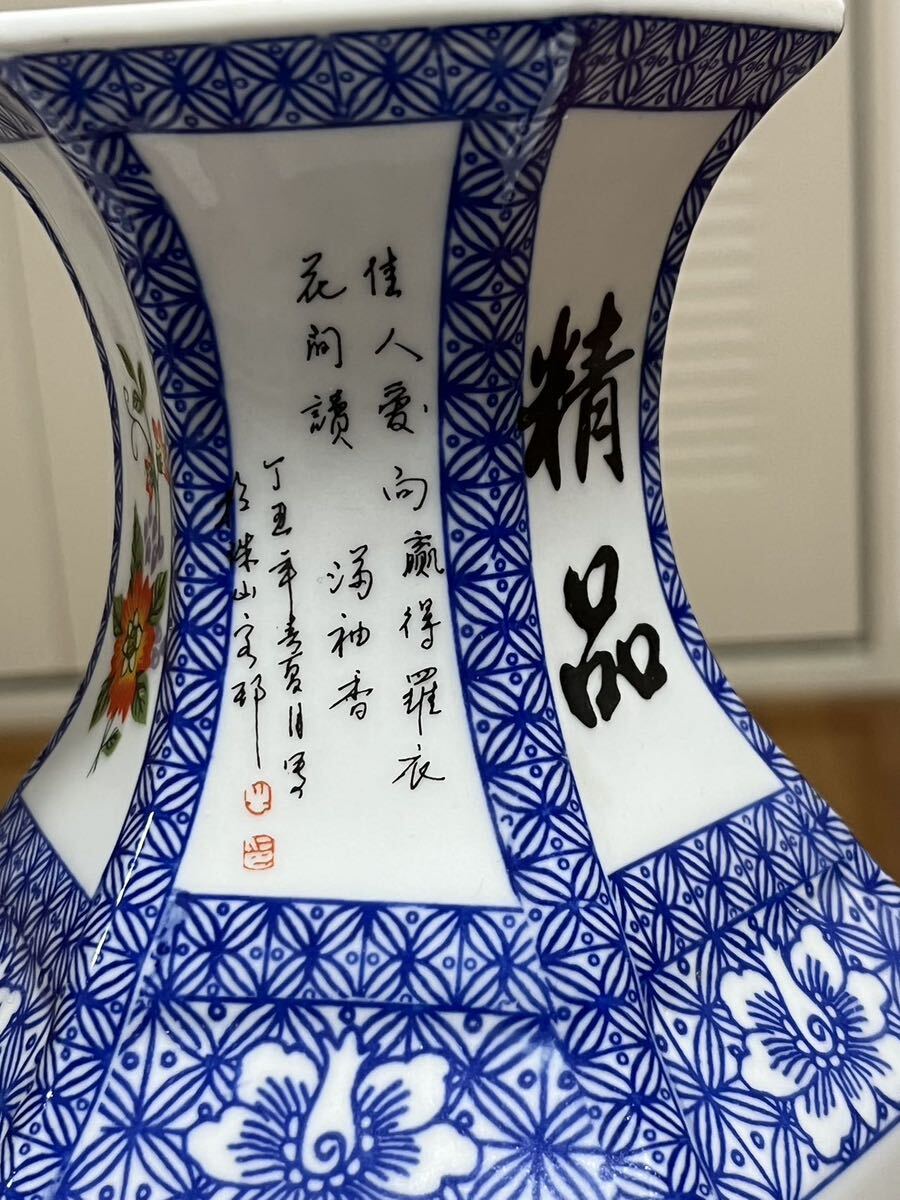 精品
佳人愛向
花間讀
贏得羅衣
滿袖香
丁丑年春夏月寫
於珠山客邸